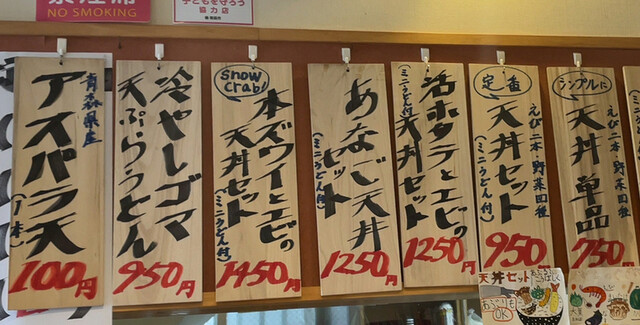 禁煙席
NO SMOKING
子どもを守ろう
協力店
青森県産
アスパラ天
(1本)
100円
冷やしゴマ
天ぷらうどん
950円
snow
crab!
本ズワイとエビの
天丼セット
(ミニうどん付)
1450円
あなご天丼
セット
(ミニうどん付)
1250円
活ホタテとエビの
天丼セット
(ミニうどん付)
1250円
定番
えび二本 野菜四種
天丼セット
(ミニうどん付)
950円
シンプルに
えび二本 野菜四種
天丼 単品
750円
天丼セット